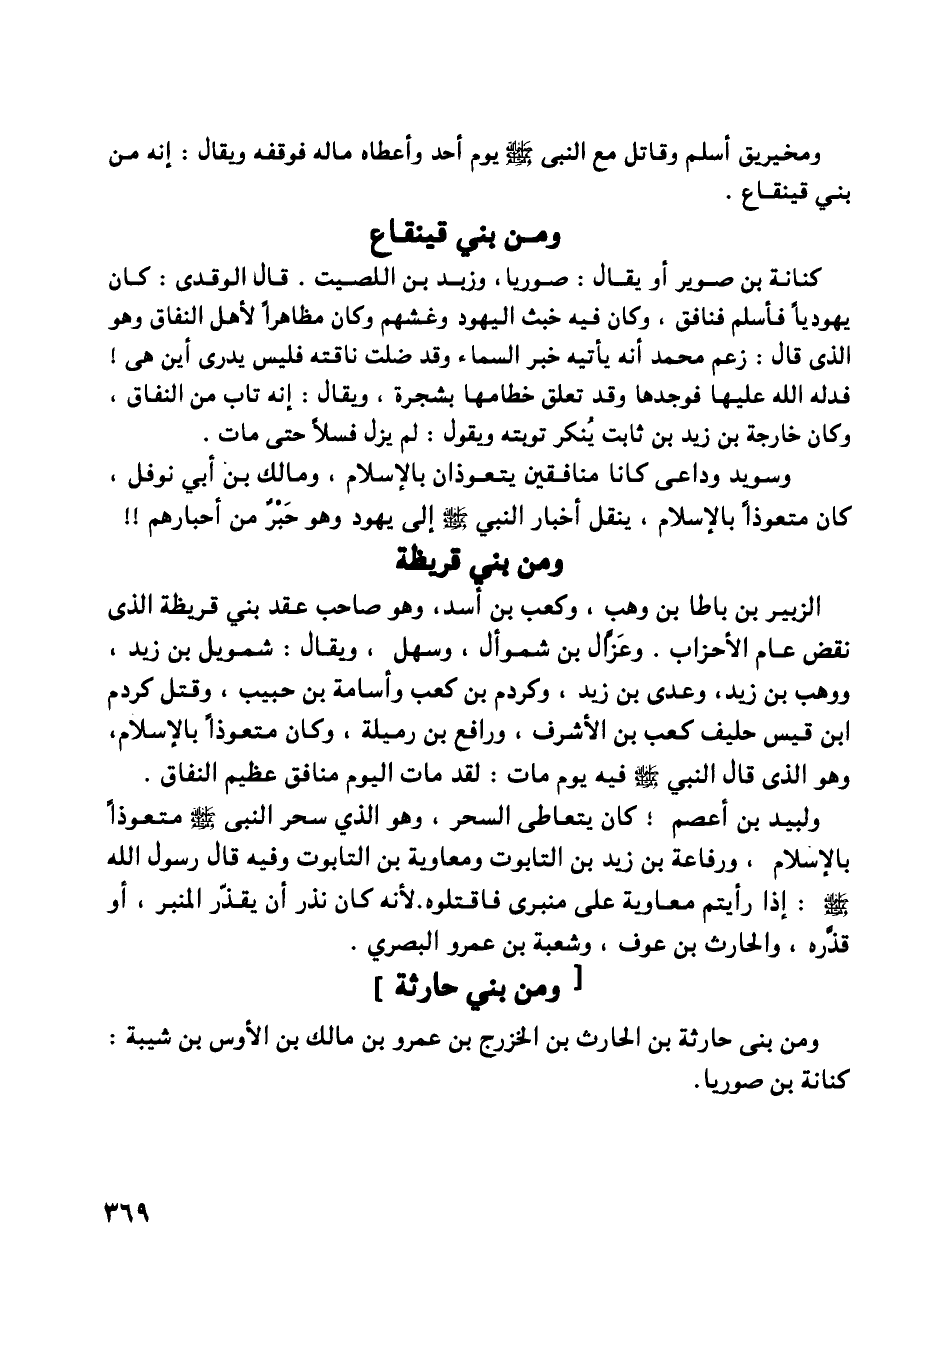 ومخيريق أسلم وقاتل مع النبى ﷺ يوم أحد وأعطاه ماله فوقفه ويقال : إنه من
بني قينقاع .
ومن بني قينقاع
كنانة بن صوير أو يقال : صوريا، وزيد بن اللصيت . قال الوقدى : كان
يهودياً فأسلم فنافق ، وكان فيه خبث اليهود وغشهم وكان مظاهراً لأهل النفاق وهو
الذى قال : زعم محمد أنه يأتيه خبر السماء وقد ضلت ناقته فليس يدرى أين هى !
فدله الله عليها فوجدها وقد تعلق خطامها بشجرة ، ويقال : إنه تاب من النفاق ،
وكان خارجة بن زيد بن ثابت يُنكر توبته ويقول : لم يزل فسلاً حتى مات .
وسويد وداعى كانا منافقين يتعوذان بالإسلام ، ومالك بن أبي نوفل ،
كان متعوذاً بالإسلام ، ينقل أخبار النبي ﷺ إلى يهود وهو حَبْرٌ من أحبارهم !!
ومن بني قريظة
الزبير بن باطا بن وهب ، وكعب بن أسد، وهو صاحب عقد بني قريظة الذى
نقض عام الأحزاب . وعَزَّال بن شموأل ، وسهل ، ويقال : شمويل بن زيد ،
ووهب بن زيد، وعدى بن زيد ، وكردم بن كعب وأسامة بن حبيب ، وقتل كردم
ابن قيس حليف كعب بن الأشرف ، ورافع بن رميلة ، وكان متعوذاً بالإسلام،
وهو الذى قال النبي ﷺ فيه يوم مات : لقد مات اليوم منافق عظيم النفاق .
ولبيد بن أعصم ؛ كان يتعاطى السحر ، وهو الذي سحر النبى ﷺ متعوذاً
بالإسلام ، ورفاعة بن زيد بن التابوت ومعاوية بن التابوت وفيه قال رسول الله
ﷺ : إذا رأيتم معاوية على منبرى فاقتلوه.لأنه كان نذر أن يقذّر المنبر ، أو
قذَّره ، والحارث بن عوف ، وشعبة بن عمرو البصري .
[ ومن بني حارثة ]
ومن بنى حارثة بن الحارث بن الخزرج بن عمرو بن مالك بن الأوس بن شيبة :
كنانة بن صوريا.
٣٦٩